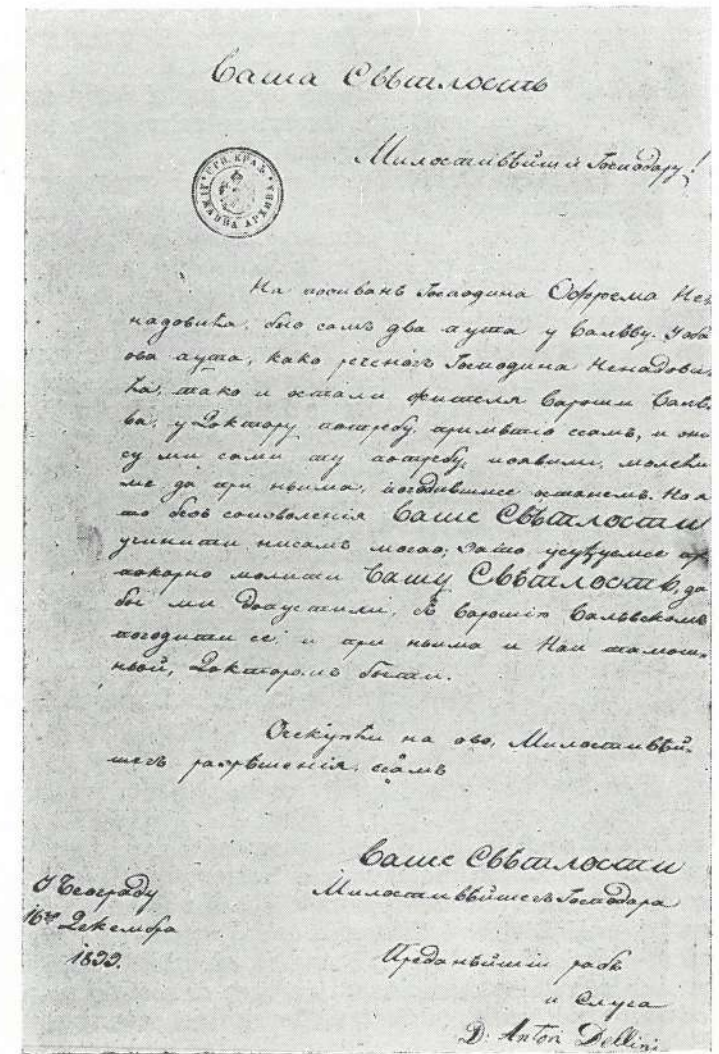 Ваша Свѣтлость
Милостивѣйшій Господару!
СРП. КРАЉ. ДРЖАВНА АРХИВА
На позиванѣ Господина Єфрема Не-
надовића, біо самь два пута у Валѣву. У оба
ова пута, како реченогъ Господина Ненадови-
ћа, тако и остали жителя Вароши Валѣ-
ва, у Доктору потребу, приметіо єсамъ, и они
су ми сами ту потребу, появили, молећи
ме да при ньима, погодившисе останемъ. Но я
то безъ соизволенія Ваше Свѣтлости
учинити нисамъ могао; Зато усуђуемсе пр
покорно молити Вашу Свѣтлость, да
бы ми допустили, съ Варошію Валѣвскомъ
погодити се, и при ньима и Наи тамош-
ньой, Докторомъ быти.
Очекуюћи на ово, Милостивѣй-
шегъ разрѣшенія, єсамъ
Ваше Свѣтлости
Милостивѣйшегъ Господара
У Београду
16го Декембра
1833.
Преданѣйшій рабъ
и Слуга
D: Anton Dellini